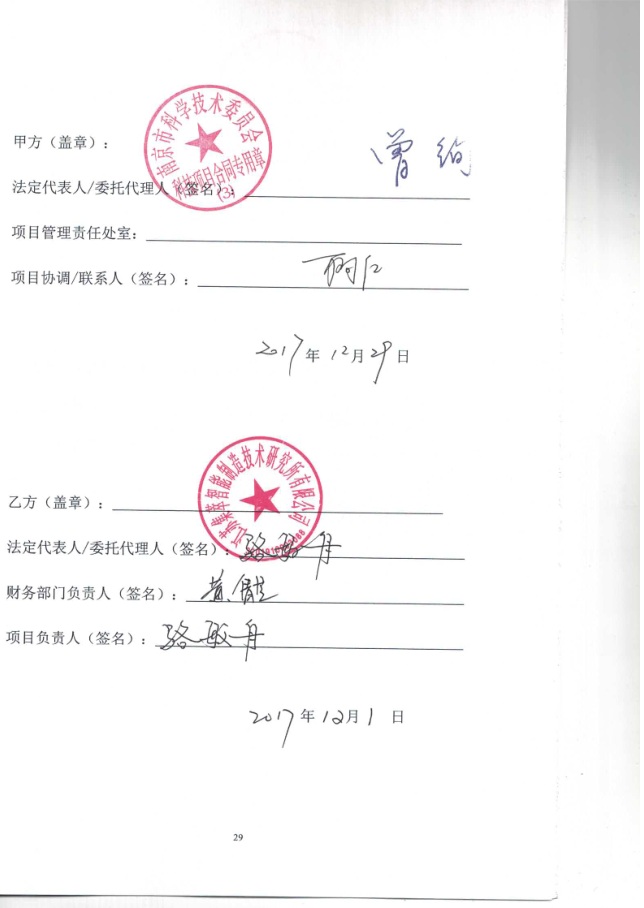 南京市科学技术委员会
科技项目合同专用章
(3)
甲方（盖章）：
曾
法定代表人/委托代理人（签名）：
项目管理责任处室：
项目协调/联系人（签名）：
2017年12月29日
智能制造技术研究所有限公司
乙方（盖章）：
法定代表人/委托代理人（签名）：骆敏舟
财务部门负责人（签名）：黄
项目负责人（签名）：骆敏舟
2017年12月1日
29